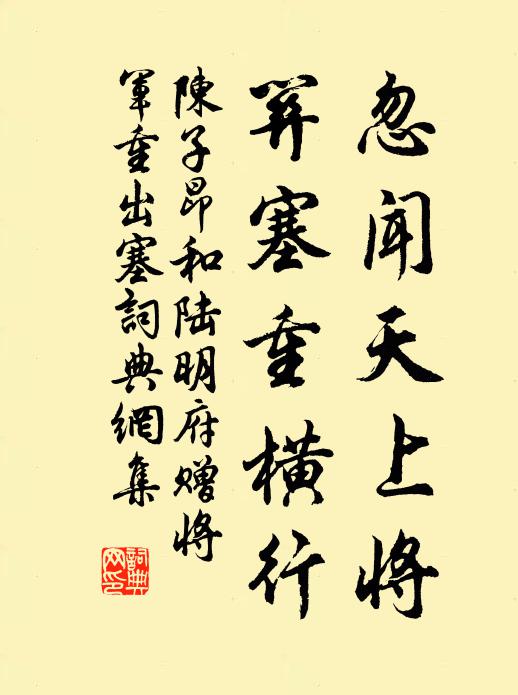 忽聞天上將
關塞重橫行
陳子昂和陸明府赠將
軍重出塞詞典網集
詞典
网印